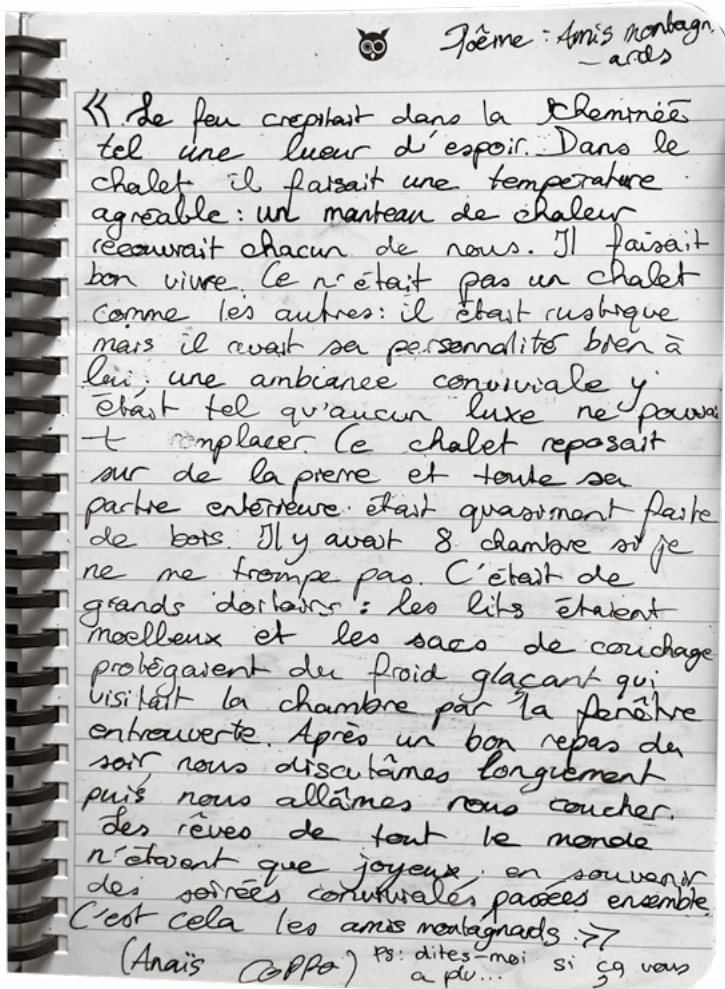 Poème : Amis montagn
- ards
« Le feu crépitait dans la cheminée
tel une lueur d'espoir. Dans le
chalet il faisait une température
agréable : un manteau de chaleur
recouvrait chacun de nous. Il faisait
bon vivre. Ce n'était pas un chalet
comme les autres : il était rustique
mais il avait sa personnalité bien à
lui ; une ambiance conviviale y
était tel qu'aucun luxe ne pouvai
t mplacer. Ce chalet reposait
sur de la pierre et toute sa
partie extérieure était quasiment faite
de bois. Il y avait 8 chambre si je
ne me trompe pas. C'était de
grands dortoirs : les lits étaient
moelleux et les sacs de couchage
protégaient du froid glaçant qui
visitait la chambre par la fenêtre
entrouverte. Après un bon repas du
soir nous discutâmes longuement
puis nous allâmes nous coucher.
Les rêves de tout le monde
n'étaient que joyeux, en souvenir
des soirées conviviales passées ensemble.
C'est cela les amis montagnards »
(Anaïs COPPO) PS : dites-moi si ça vous
a plu...